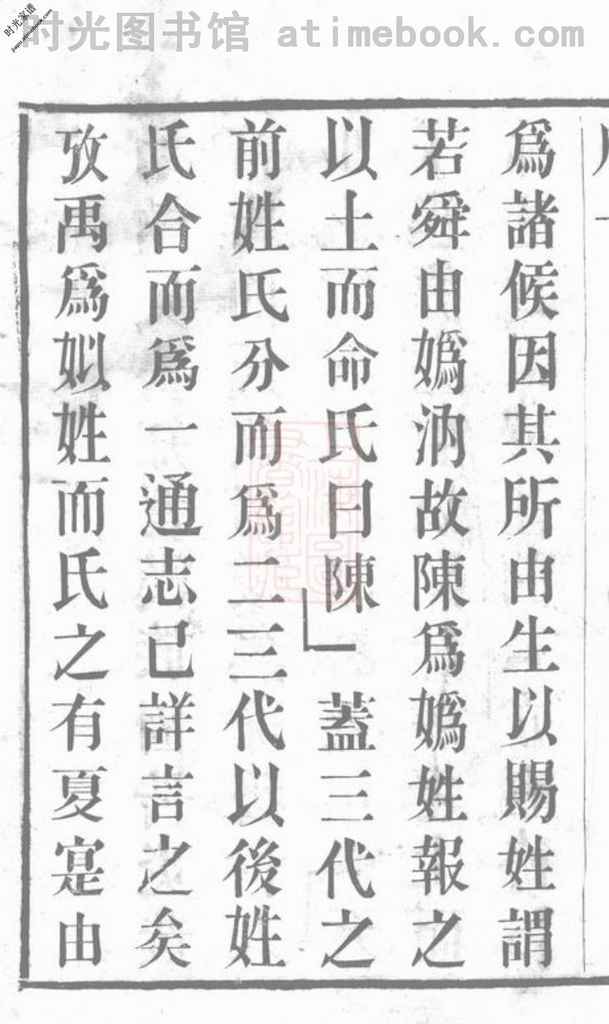 时光图书馆 atimebook.com
时光家谱
爲諸候因其所由生以賜姓謂
若舜由嬀汭故陳爲嬀姓報之
以土而命氏曰陳﹂蓋三代之
前姓氏分而爲二三代以後姓
氏合而爲一通志已詳言之矣
攷禹爲姒姓而氏之有夏寔由